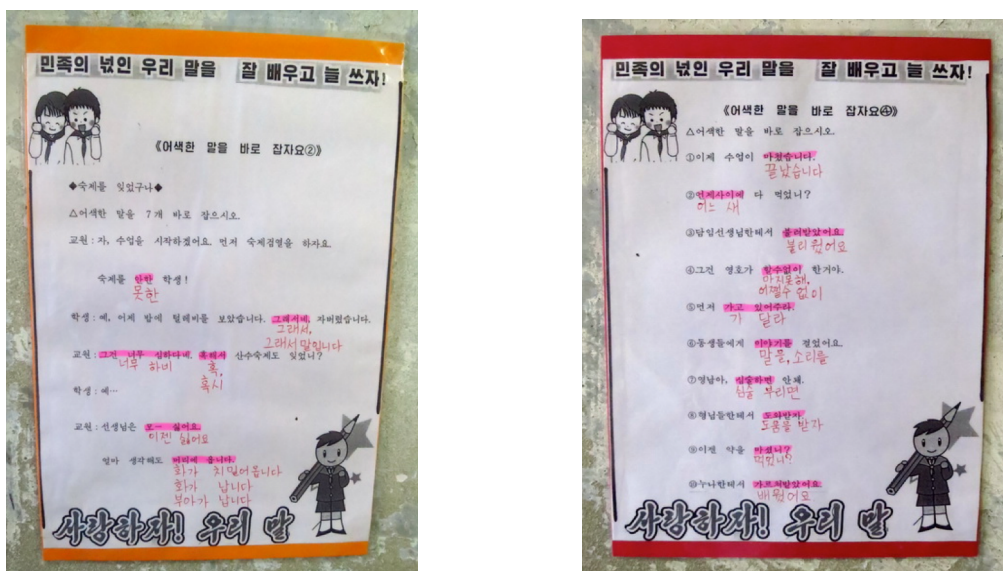 민족의 넋인 우리 말을 잘 배우고 늘 쓰자!
《어색한 말을 바로 잡자요②》
◆숙제를 잊었구나◆
△어색한 말을 7개 바로 잡으시오.
교원 : 자, 수업을 시작하겠어요. 먼저 숙제검열을 하자요.
숙제를 안한 학생!
못한
학생 : 예, 어제 밤에 텔레비를 보았습니다. 그래서네, 자버렸습니다.
그래서,
그래서 말입니다
교원 : 그건 너무 심하다네. 혹해서 산수숙제도 잊었니?
너무 하네 혹,
혹시
학생 : 예…
교원 : 선생님은 모ー 싫어요.
이젠 싫어요
얼마 생각해도 머리에 옵니다.
화가 치밀어옵니다
화가 납니다
부아가 납니다
사랑하자! 우리 말
민족의 넋인 우리 말을 잘 배우고 늘 쓰자!
《어색한 말을 바로 잡자요④》
△어색한 말을 바로 잡으시오.
①이제 수업이 마쳤습니다.
끝났습니다
②언제사이에 다 먹었니?
어느 새
③담임선생님한테서 불러받았어요.
불리웠어요
④그건 영호가 할수없이 한거야.
마지못해,
어쩔수 없이
⑤먼저 가고 있어주라.
기 달라
⑥동생들에게 이야기를 걸었어요.
말을, 소리를
⑦영남아, 심술하면 안돼.
심술 부리면
⑧형님들한테서 도와받자.
도움을 받자
⑨이젠 약을 마셨니?
먹었니?
⑩누나한테서 가르쳐받았어요.
배웠어요
사랑하자! 우리 말